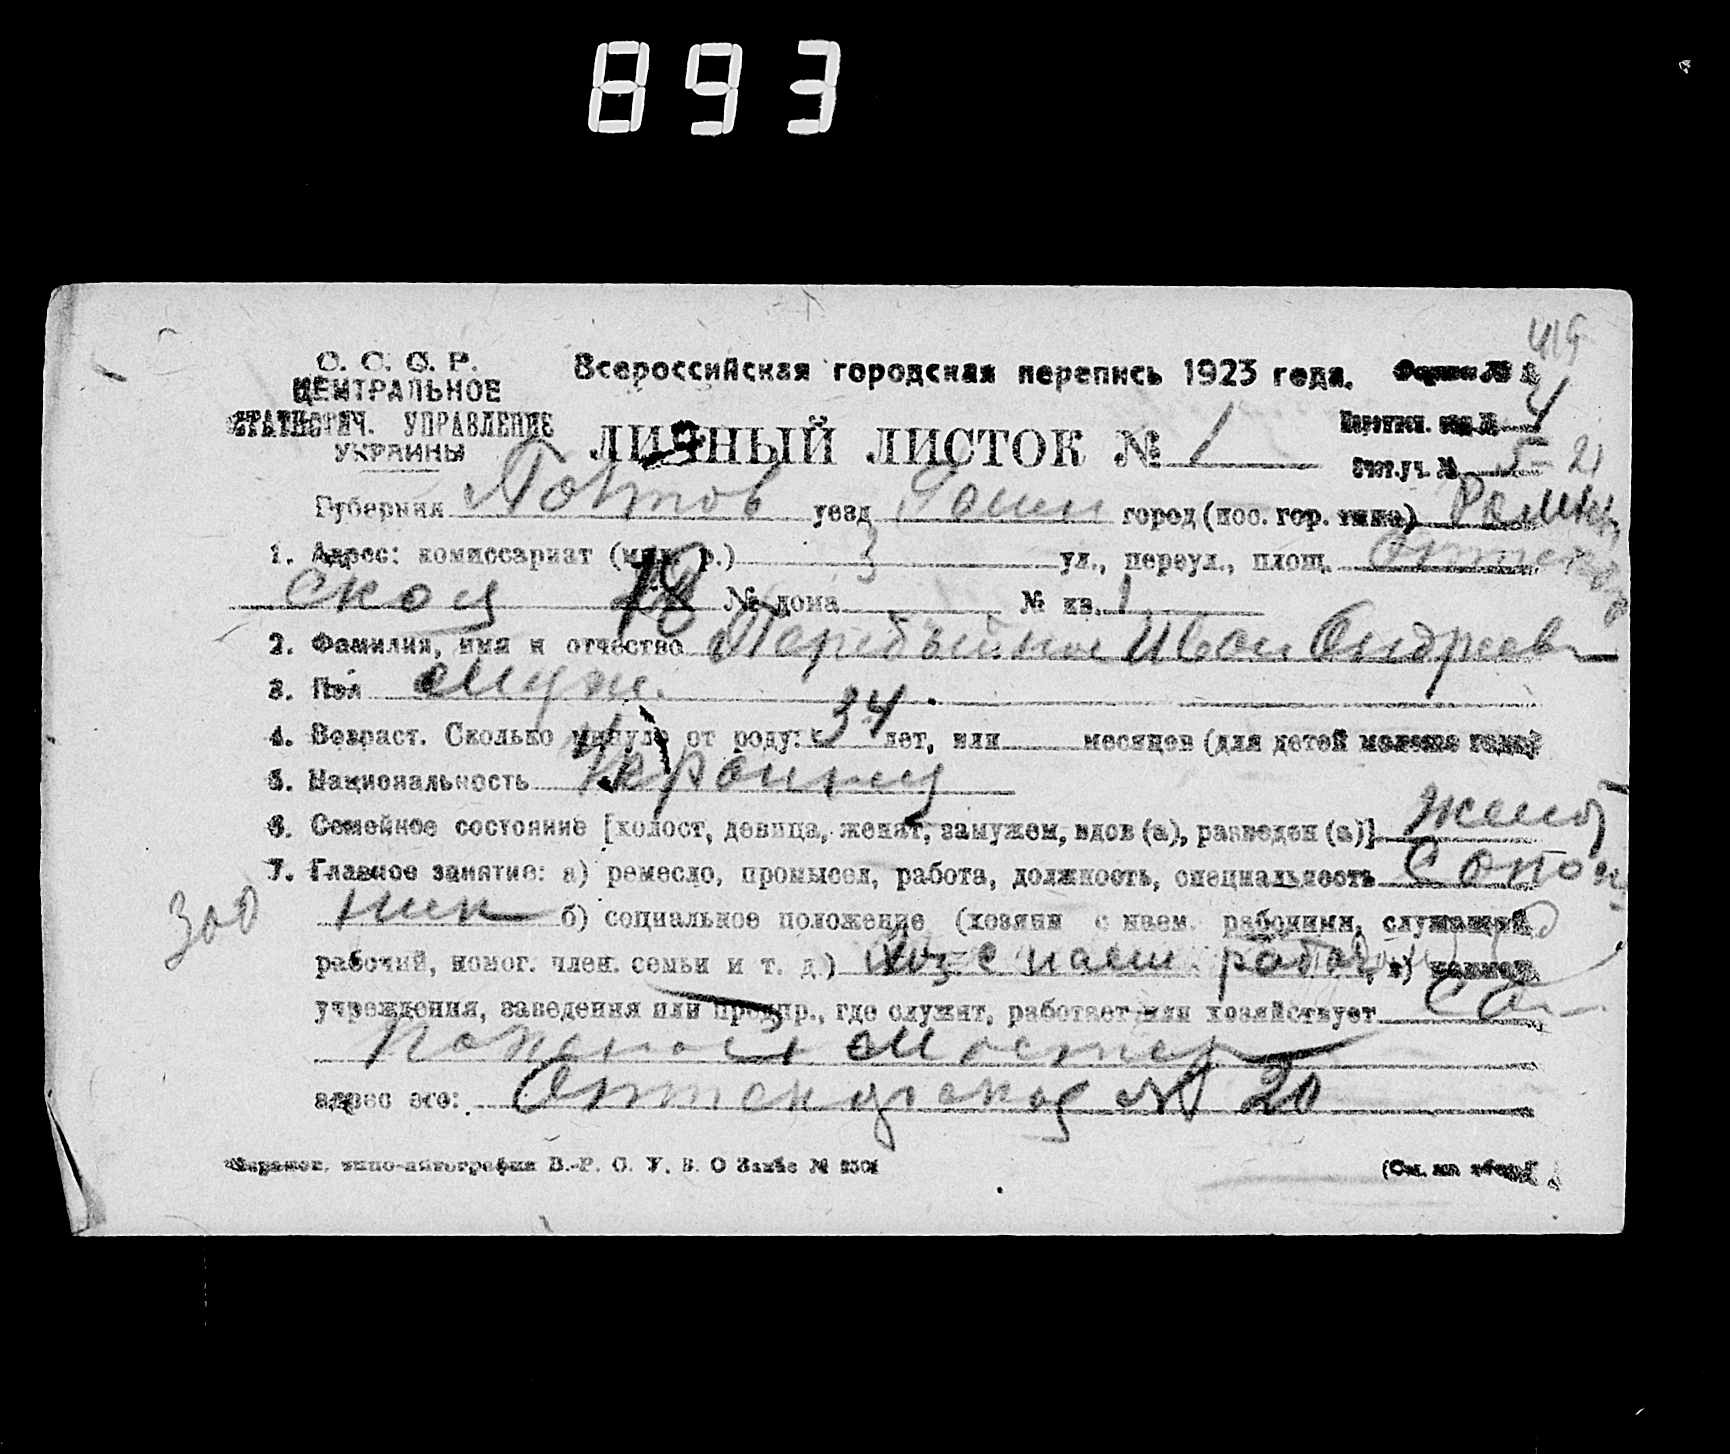 893
419
С. С. С. Р.
ЦЕНТРАЛЬНОЕ
СТАТИСТИЧ. УПРАВЛЕНИЕ
УКРАИНЫ
Всероссийская городская перепись 1923 года.
Форма № 2
ЛИЧНЫЙ ЛИСТОК № 1
4
Счет. уч. № 5-21
Губерния Полтов уезд Ромен город (пос. гор. типа) Ромны
1. Адрес: комиссариат (мил. р.) 3 ул., переул., площ.
ской 18 № дома № кв. 1
2. Фамилия, имя и отчество Иван Андреев
3. Пол Муж.
4. Возраст. Сколько минуло от роду: 34 лет, или месяцев (для детей моложе года)
5. Национальность Украинец
6. Семейное состояние [холост, девица, женат, замужем, вдов (а), разведен (а)] Женат
7. Главное занятие: а) ремесло, промысел, работа, должность, специальность Сапож
ник б) социальное положение (хозяин с наем. рабочими, служащий,
рабочий, помог. член. семьи и т. д.) Хоз. с наем. рабоч. в) наимен.
учреждения, заведения или предпр., где служит, работает или хозяйствует Са-
пожная мастер
адрес его: № 20
типо-литография В.-Р. С. У. В. О Заказ №
(См. на обор.)